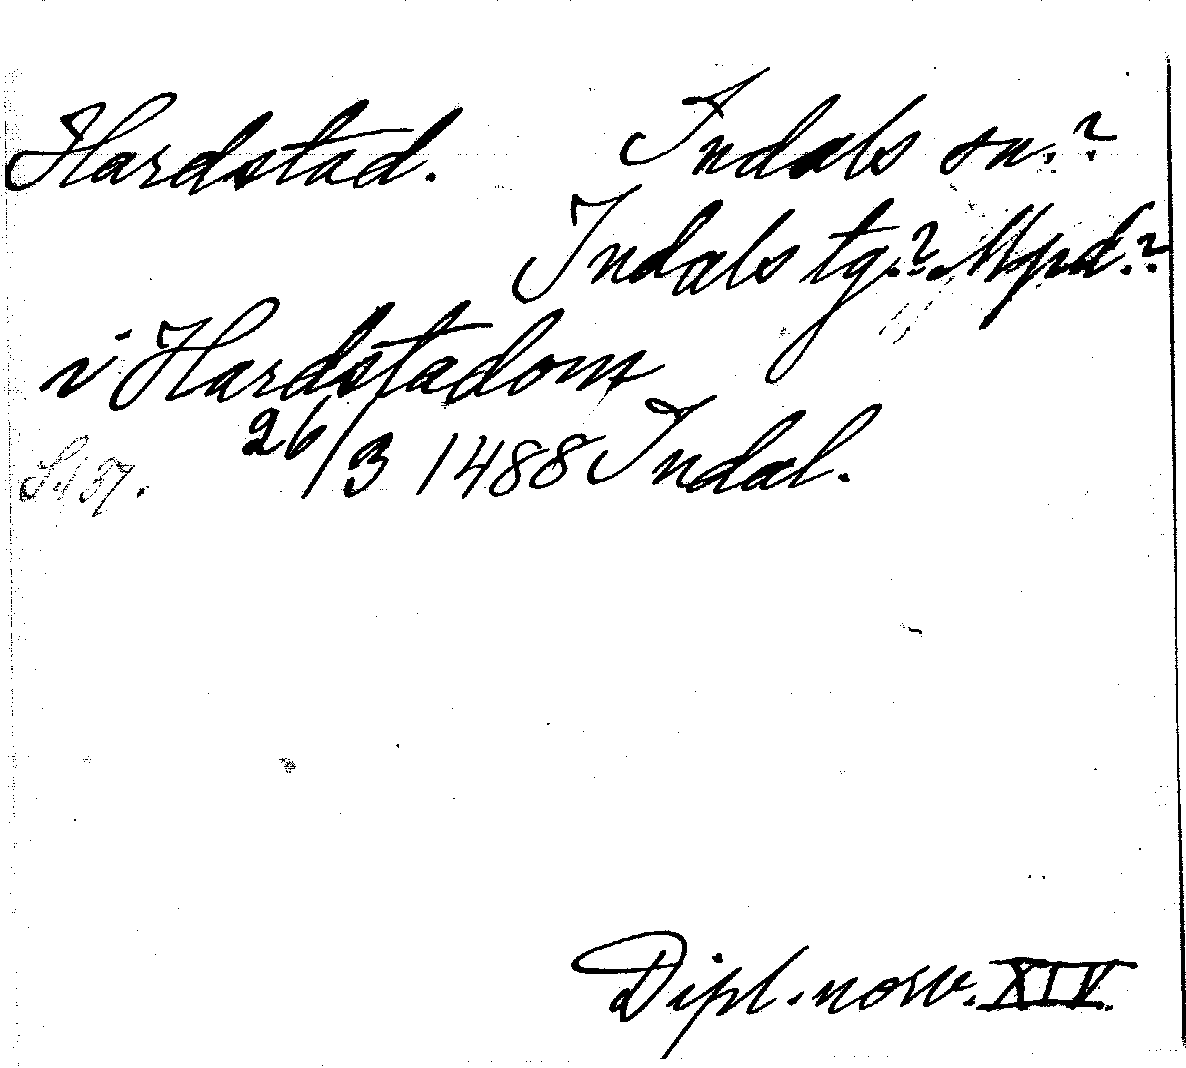 Hardstad. Indals sn.?
Indals tg.? Mpd.?
i Hardstadom
26/3 1488 Indal.
S. 137.
Dipl. norv. XIV.